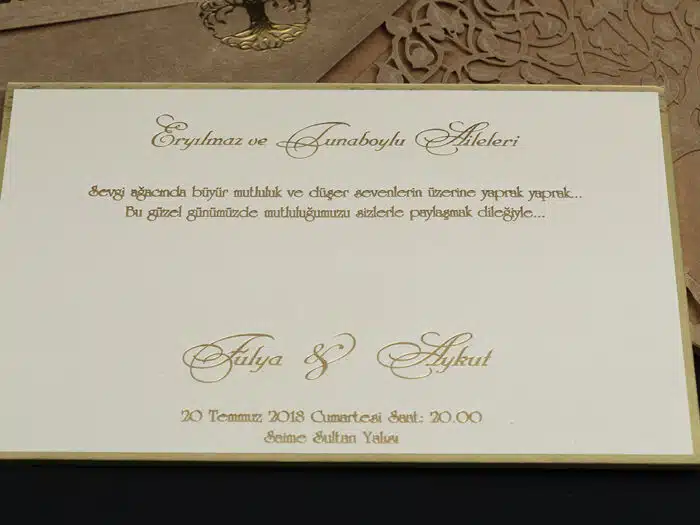 Eryılmaz ve Tunaboylu Aileleri
Sevgi ağacında büyür mutluluk ve düşer sevenlerin üzerine yaprak yaprak...
Bu güzel günümüzde mutluluğumuzu sizlerle paylaşmak dileğiyle...
Fulya & Aykut
20 Temmuz 2018 Cumartesi Saat: 20.00
Saime Sultan Yalısı